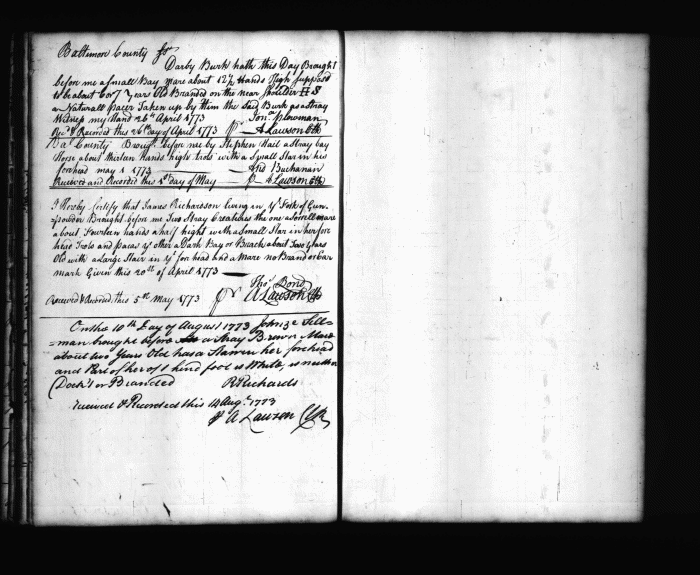 Baltimore County fs
Darby Burk hath this Day Brought
before me a Small Bay mare about 12½ Hands High Suppos'd
to be about 6 or 7 years Old Branded on the near Sholder H S
a Naturall pacer Taken up by him the Said Burk as a Stray
Witness my Hand 26th April 1773 Jon. Plowman
Rec'd & Recorded this 26th day of April 1773 A Lawson Clk
Ba' County Brou't before me by Stephen Hail a Stray bay
Horse about thirteen hands high trots with a Small Star in his
forehead may 1 1773 And Buchanan
Received and Recorded this 1st day of May A Lawson Clk
I Hereby Certify that James Richardson living in ye Fork of Gun-
powder Brought before me Two Stray Creatches the one a Sorrell mare
about Fourteen hands a half hight with a Small Star in her fore
head Trots and paces ye other a Dark Bay or Brach about Two years
Old with a Large Starr in ye for head and a Mare no Brand or Ear
mark Given this 20st of April 1773
Tho' Bond
Received & Recorded this 5st May 1773 A Lawson Clk
On the 10th Day of August 1773 Sell=
=man brought before a Stray Brown Mare
about two Years Old has a Star in her forehead
and Part of her off hind foot is White, is neither
Dock'd or Branded R Richards
received & Recorded this 14 Aug. 1773
A Lawson Clk